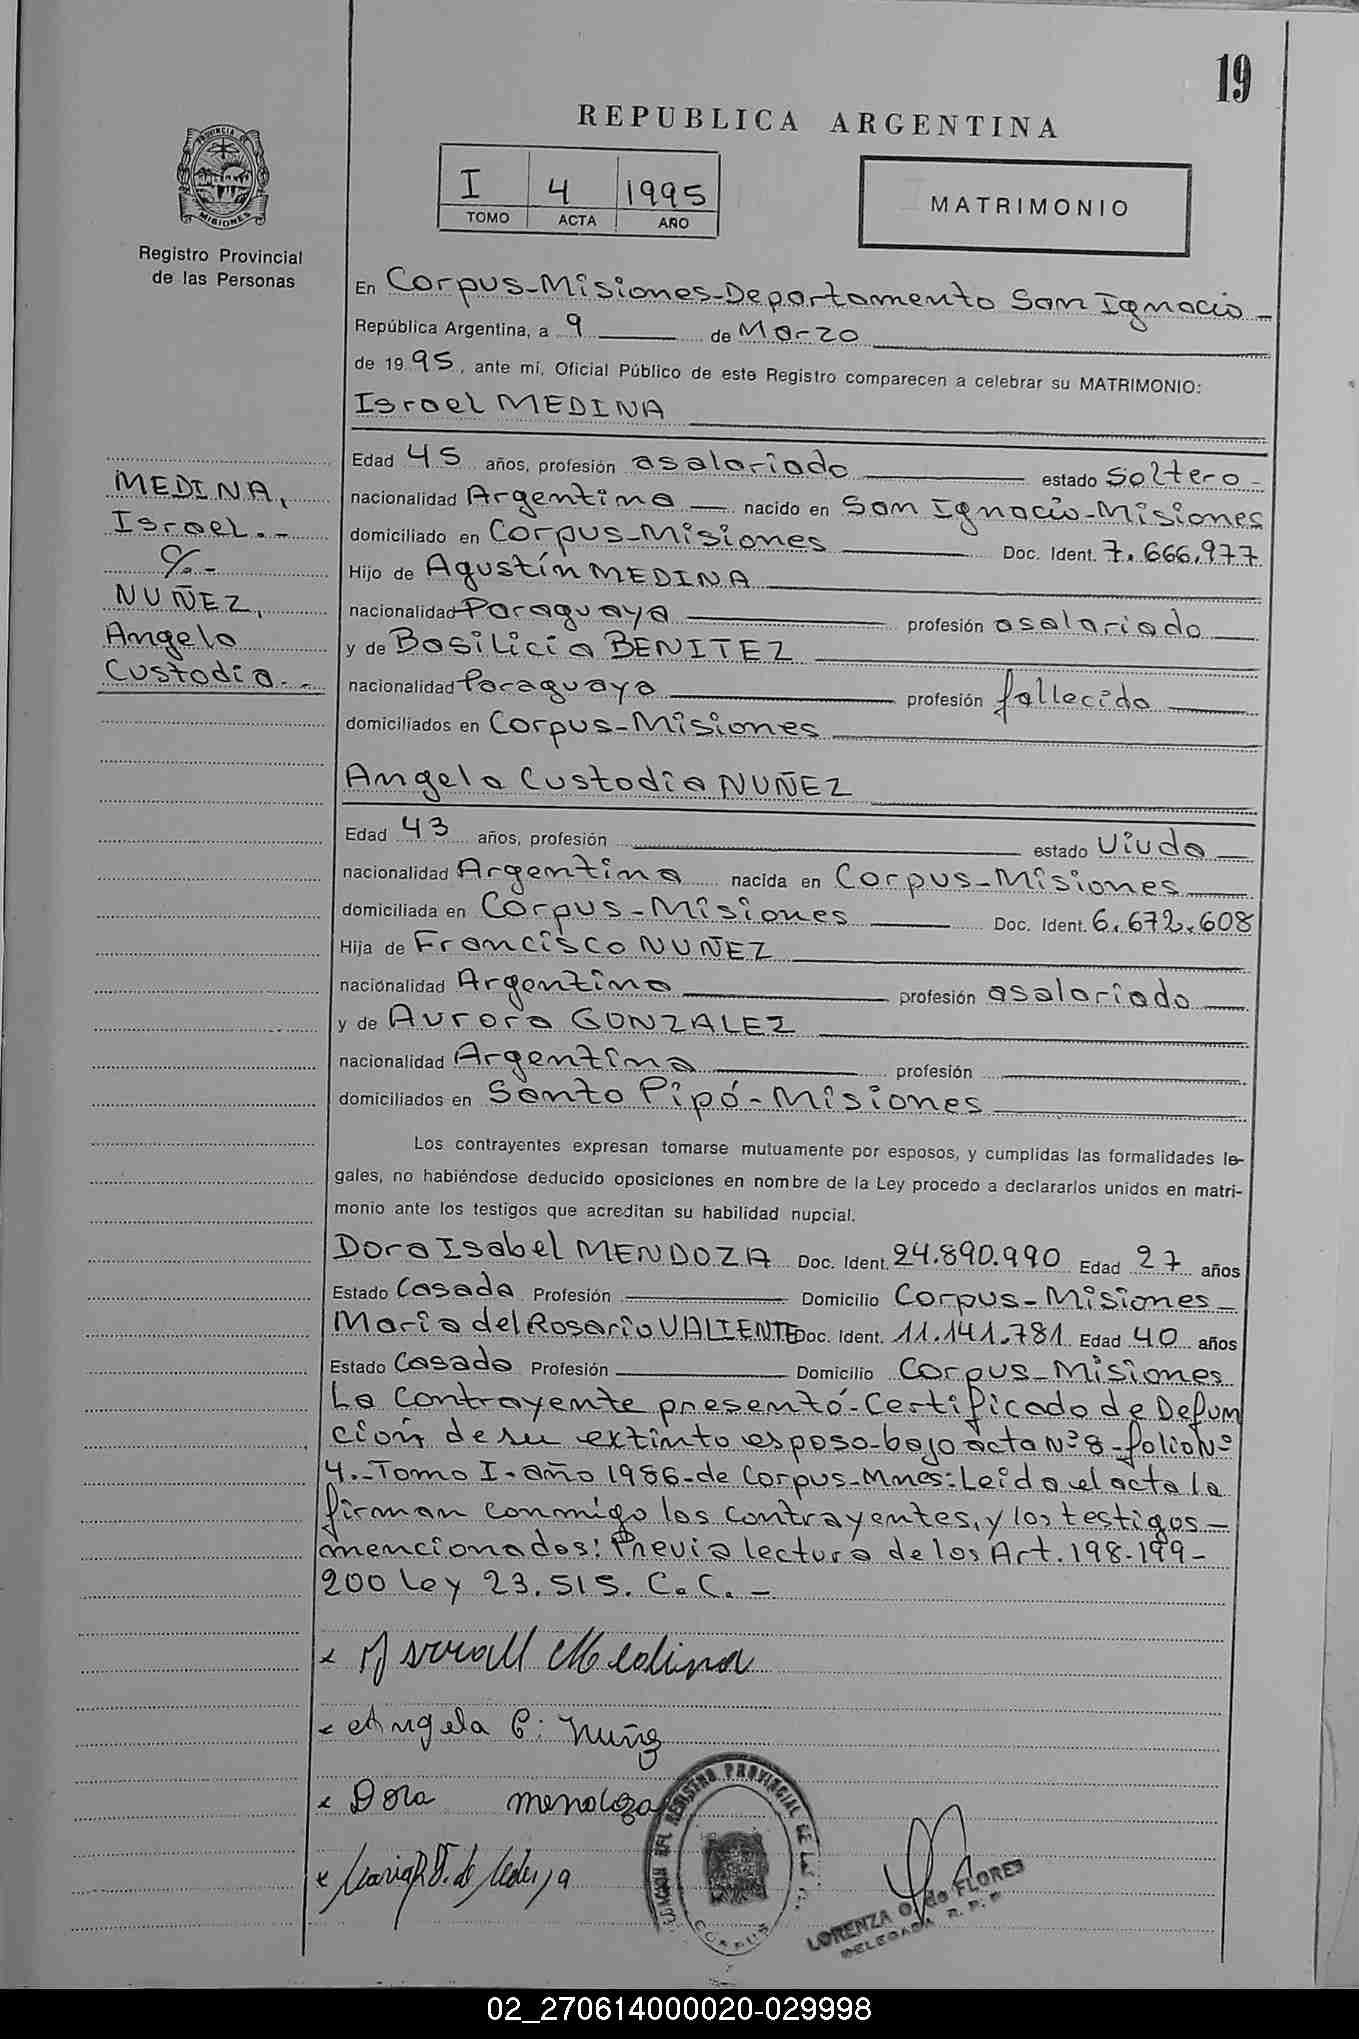 19
REPUBLICA ARGENTINA
I 4 1995
TOMO ACTA AÑO
MATRIMONIO
PROVINCIA DE
MISIONES
Registro Provincial
de las Personas
En Corpus-Misiones-Departamento San Ignacio-
República Argentina, a 9 de Marzo
de 1995, ante mí, Oficial Público de este Registro comparecen a celebrar su MATRIMONIO:
Israel MEDINA
Edad 45 años, profesión asalariado estado Soltero-
nacionalidad Argentina nacido en San Ignacio-Misiones
domiciliado en Corpus-Misiones Doc. Ident. 7.666.977
Hijo de Agustín MEDINA
nacionalidad Paraguaya profesión asalariado
y de Basilicia BENITEZ
nacionalidad Paraguaya profesión fallecida
domiciliados en Corpus-Misiones
MEDINA,
Israel.-
c/.-
NUÑEZ,
Angela
Custodia.-
Angela Custodia NUÑEZ
Edad 43 años, profesión estado Viuda
nacionalidad Argentina nacida en Corpus-Misiones
domiciliada en Corpus-Misiones Doc. Ident. 6.672.608
Hija de Francisco NUÑEZ
nacionalidad Argentina profesión asalariado
y de Aurora GONZALEZ
nacionalidad Argentina profesión
domiciliados en Santo Pipó-Misiones
Los contrayentes expresan tomarse mutuamente por esposos, y cumplidas las formalidades le-
gales, no habiéndose deducido oposiciones en nombre de la Ley procedo a declararlos unidos en matri-
monio ante los testigos que acreditan su habilidad nupcial.
Dora Isabel MENDOZA Doc. Ident. 24.890.990 Edad 27 años
Estado Casada Profesión Domicilio Corpus-Misiones-
Maria del Rosario VALIENTE Doc. Ident. 11.141.781 Edad 40 años
Estado Casada Profesión Domicilio Corpus-Misiones
La Contrayente presentó-Certificado de Defun
ción de su extinto esposo-bajo acta Nº8-folio Nº
4.-Tomo I-año 1986-de Corpus-Mnes:Leida el acta la
firman conmigo los contrayentes, y los testigos-
mencionados: Previa lectura de los Art.198-199-
200 Ley 23.515. C.C.-
x Medina
x Angela C. Nuñez
x Dora mendoza
x
REGISTRO PROVINCIAL DE LAS
CORPUS
LORENZA O. de FLORES
DELEGADA R. P. P.
02_270614000020-029998